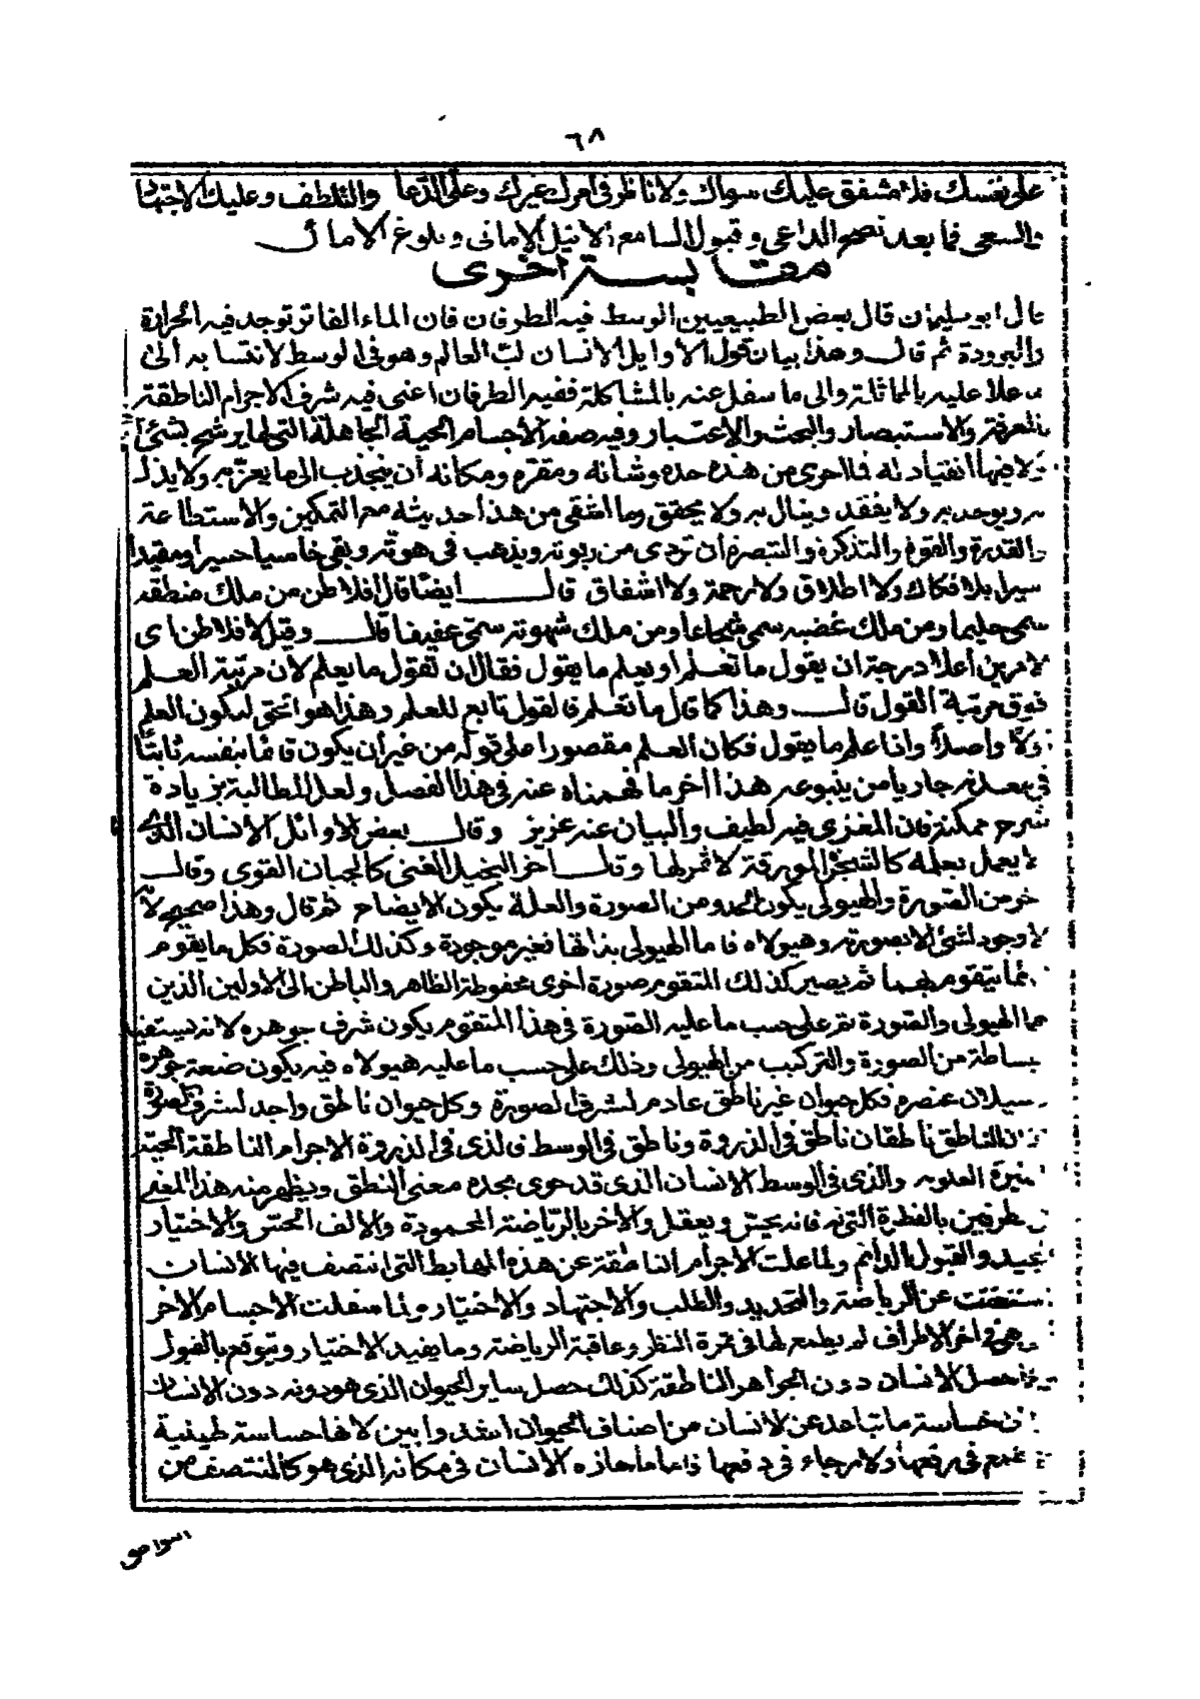 ٦٨
على نفسك فلا مشفق عليك سواك ولا ناظر في امرك غيرك وعلى الدعا والتلطف وعليك الاجتهاد
والسعي فما بعد نصح الداعي وقبول السامع الا نيل الاماني وبلوغ الامال
مقابسة اخرى
قال ابو سليمان قال بعض الطبيعيين الوسط فيه الطرفان فان الماء الفاتر توجد فيه الحرارة
والبرودة ثم قال وهذا بيان قول الأوايل الانسان لب العالم وهو في الوسط لانتسابه الى
ما علا عليه بالمماثلة والى ما سفل عنه بالمشاكلة ففيه الطرفان اعنى فيه شرف الاجرام الناطقة
بالمعرفة والاستبصار والبحث والاعتبار وفيه صفة الأجسام الحية الجاهلة التي لها برشح بشئ
ولا فيها انقياد له فما احرى من هذه حده وشانه ومقره ومكانه أن ينجذب الى ما يعز به ولا يذل
ويوجد به ولا يفقد وينال به ولا يخفق وما اشقى من هذا حديثه مع التمكين والاستطاعة
والقدرة والقوة والتذكرة والتبصرة أن تردى من ربوته ويذهب في هوته ويبقى خاسيا حسيرا ومقيدا
سيرا بلا فكاك ولا اطلاق ولا رحمة ولا اشفاق قال ايضا قال افلاطن من ملك منطقه
سمى حليما ومن ملك غضبه سمى شجاعا ومن ملك شهوته سمى عفيفا قال وقيل لأفلاطن اى
لامرين أعلا درجة ان يقول ما تعلم او يعلم ما يقول فقال ان تقول ما يعلم لأن مرتبة العلم
فوق مرتبة القول قال وهذا كما قال ما تعلم فالقول تابع للعلم وهذا هو الحق ليكون العلم
ولا واصلا واذا علم ما يقول فكان العلم مقصورا على قوله من غير ان يكون قائما بنفسه ثابتا
في معدنه جاريا من ينبوعه هذا اخر ما فهمناه عنه في هذا الفصل ولعل المطالبة بزيادة
شرح ممكنة فان المغزى فيه لطيف والبيان عنه عزيز وقال بعض الاوائل الأنسان الذى
لا يعمل بعلمه كالشجرة المورقة لا ثمر لها وقال آخر البخيل الغنى كالجبان القوى وقال
خر من الصورة والهيولى يكون الحد ومن الصورة والعلة يكون الايضاح ثم قال وهذا صحيح لأنه
لا وجود لشئ الا بصورته وهيولاه فاما الهيولى بذاتها فغير موجودة وكذلك الصورة فكل ما يقوم
فما يتقوم بهما ثم يصير كذلك المتقوم صورة اخرى محفوظة الظاهر والباطن الى الاولين الذين
هما الهيولى والصورة نعم على حسب ما عليه الصورة في هذا المتقوم يكون شرف جوهره لانه يستفيد
بساطة من الصورة والتركيب من الهيولى وذلك على حسب ما عليه هيولاه فيه يكون ضعة جوهره
سيلان عنصره فكل حيوان غير ناطق عادم لشرف الصورة وكل حيوان ناطق واجد لشرف الصورة
ن الناطق ناطقان ناطق في الذروة وناطق في الوسط فالذى في الذروة الاجرام الناطقة الحية
منيرة العلويه والذى في الوسط الانسان الذى قد حوى بحده معنى النطق ويظهر منه هذا المعنى
طرفين بالفطرة التى فيه فانه يحس ويعقل والآخر بالرياضة المحمودة والالف الحسن والاختيار
لجيد والقبول الدائم ولما علت الاجرام الناطقة عن هذه المهابط التى انتصف فيها الانسان
ستغنت عن الرياضة والتحديد والطلب والاجتهاد والاختيار ولما سفلت الاجسام الأخر
وهى في آخر الاطراف لم يطمع لها في ثمرة النظر وعاقبة الرياضة وما يفيد الاختيار ويتوقع بالقبول
حصل الانسان دون الجواهر الناطقة كذلك حصل ساير الحيوان الذى هو دونه دون الانسان
ن خساسة ما تباعد عن الانسان من اصناف الحيوان اشد وابين لانها خساسة طينية
طمع في رفعها ولا رجاء في دفعها فاما ما حازه الانسان في مكانه الذى هو كالمنتصف من
النواحى